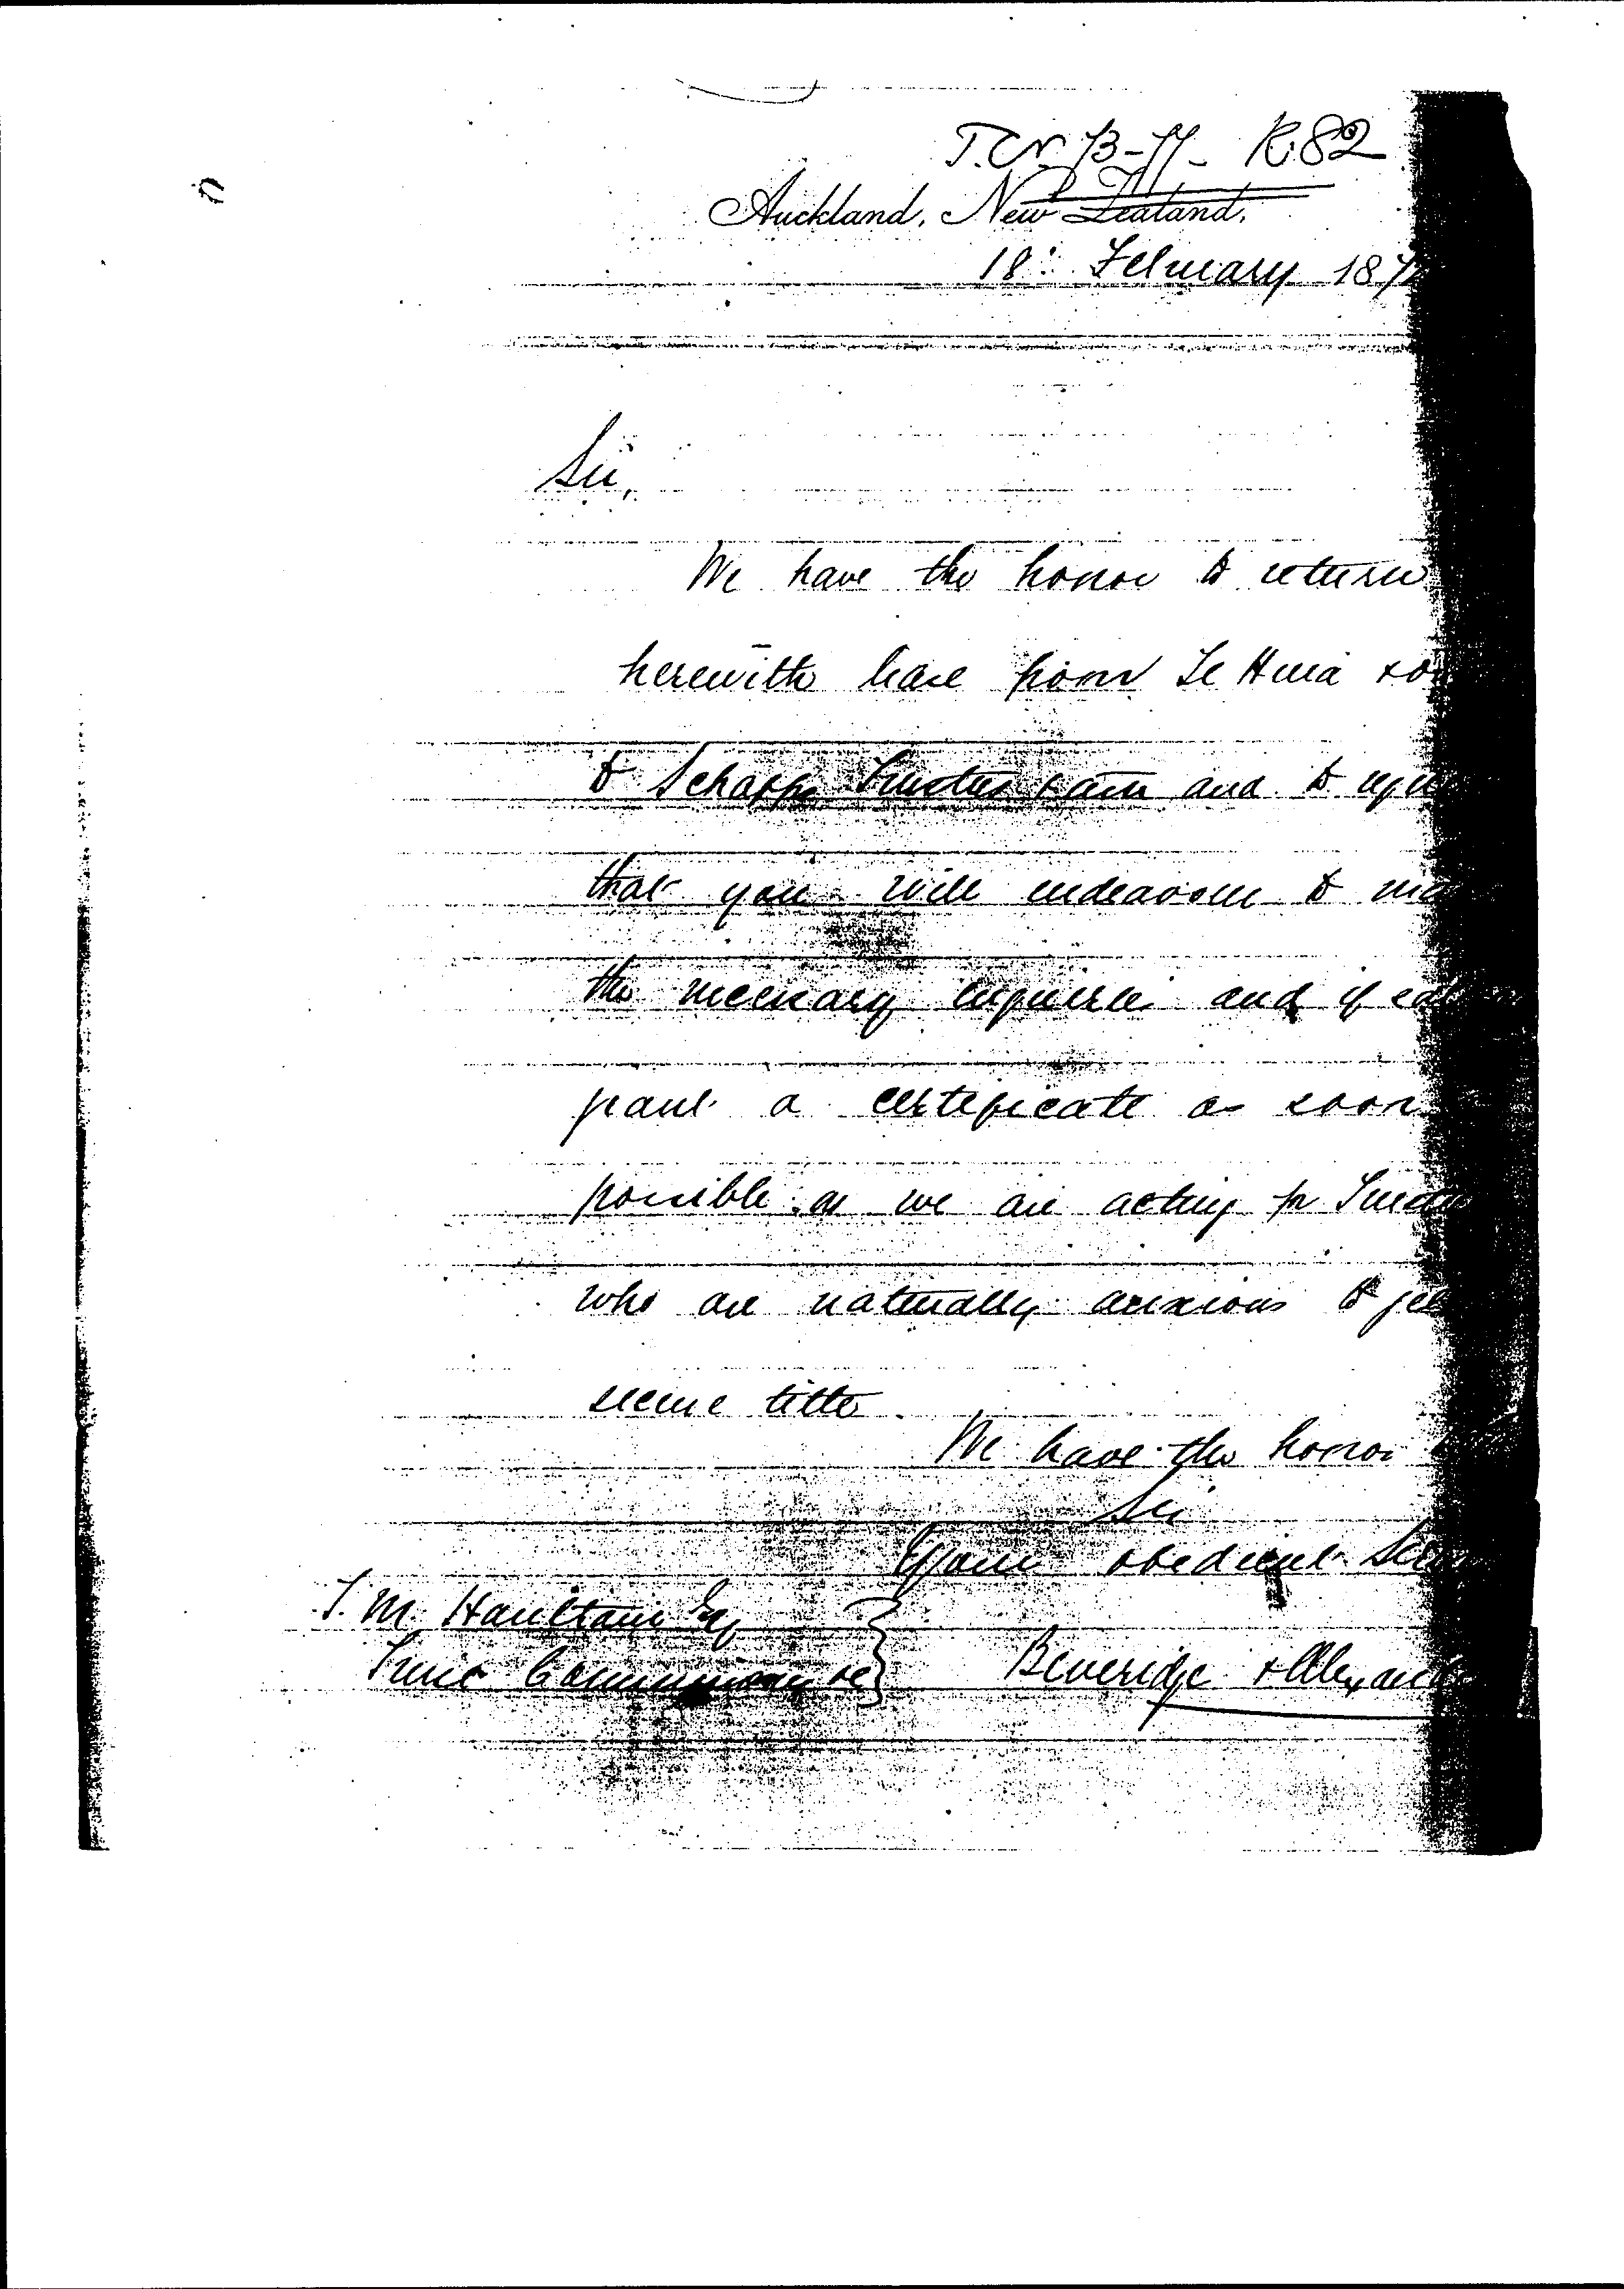 R82
Auckland, New Zealand,
18: February 187
Sir,
We have the honor to return
herewith lease from Te Huia & o
to Schappe Trustees & ann and to requ
that you will endeavour to ma
the necessary inquiries and if
grant a certificate as soon
possible as we are acting for Trus
who are naturally anxious to get
secure title
We have the honor
Sir
Your obedient Ser
T. M. Haultain Esq
Trust Commissioner
Beveridge & Alexand